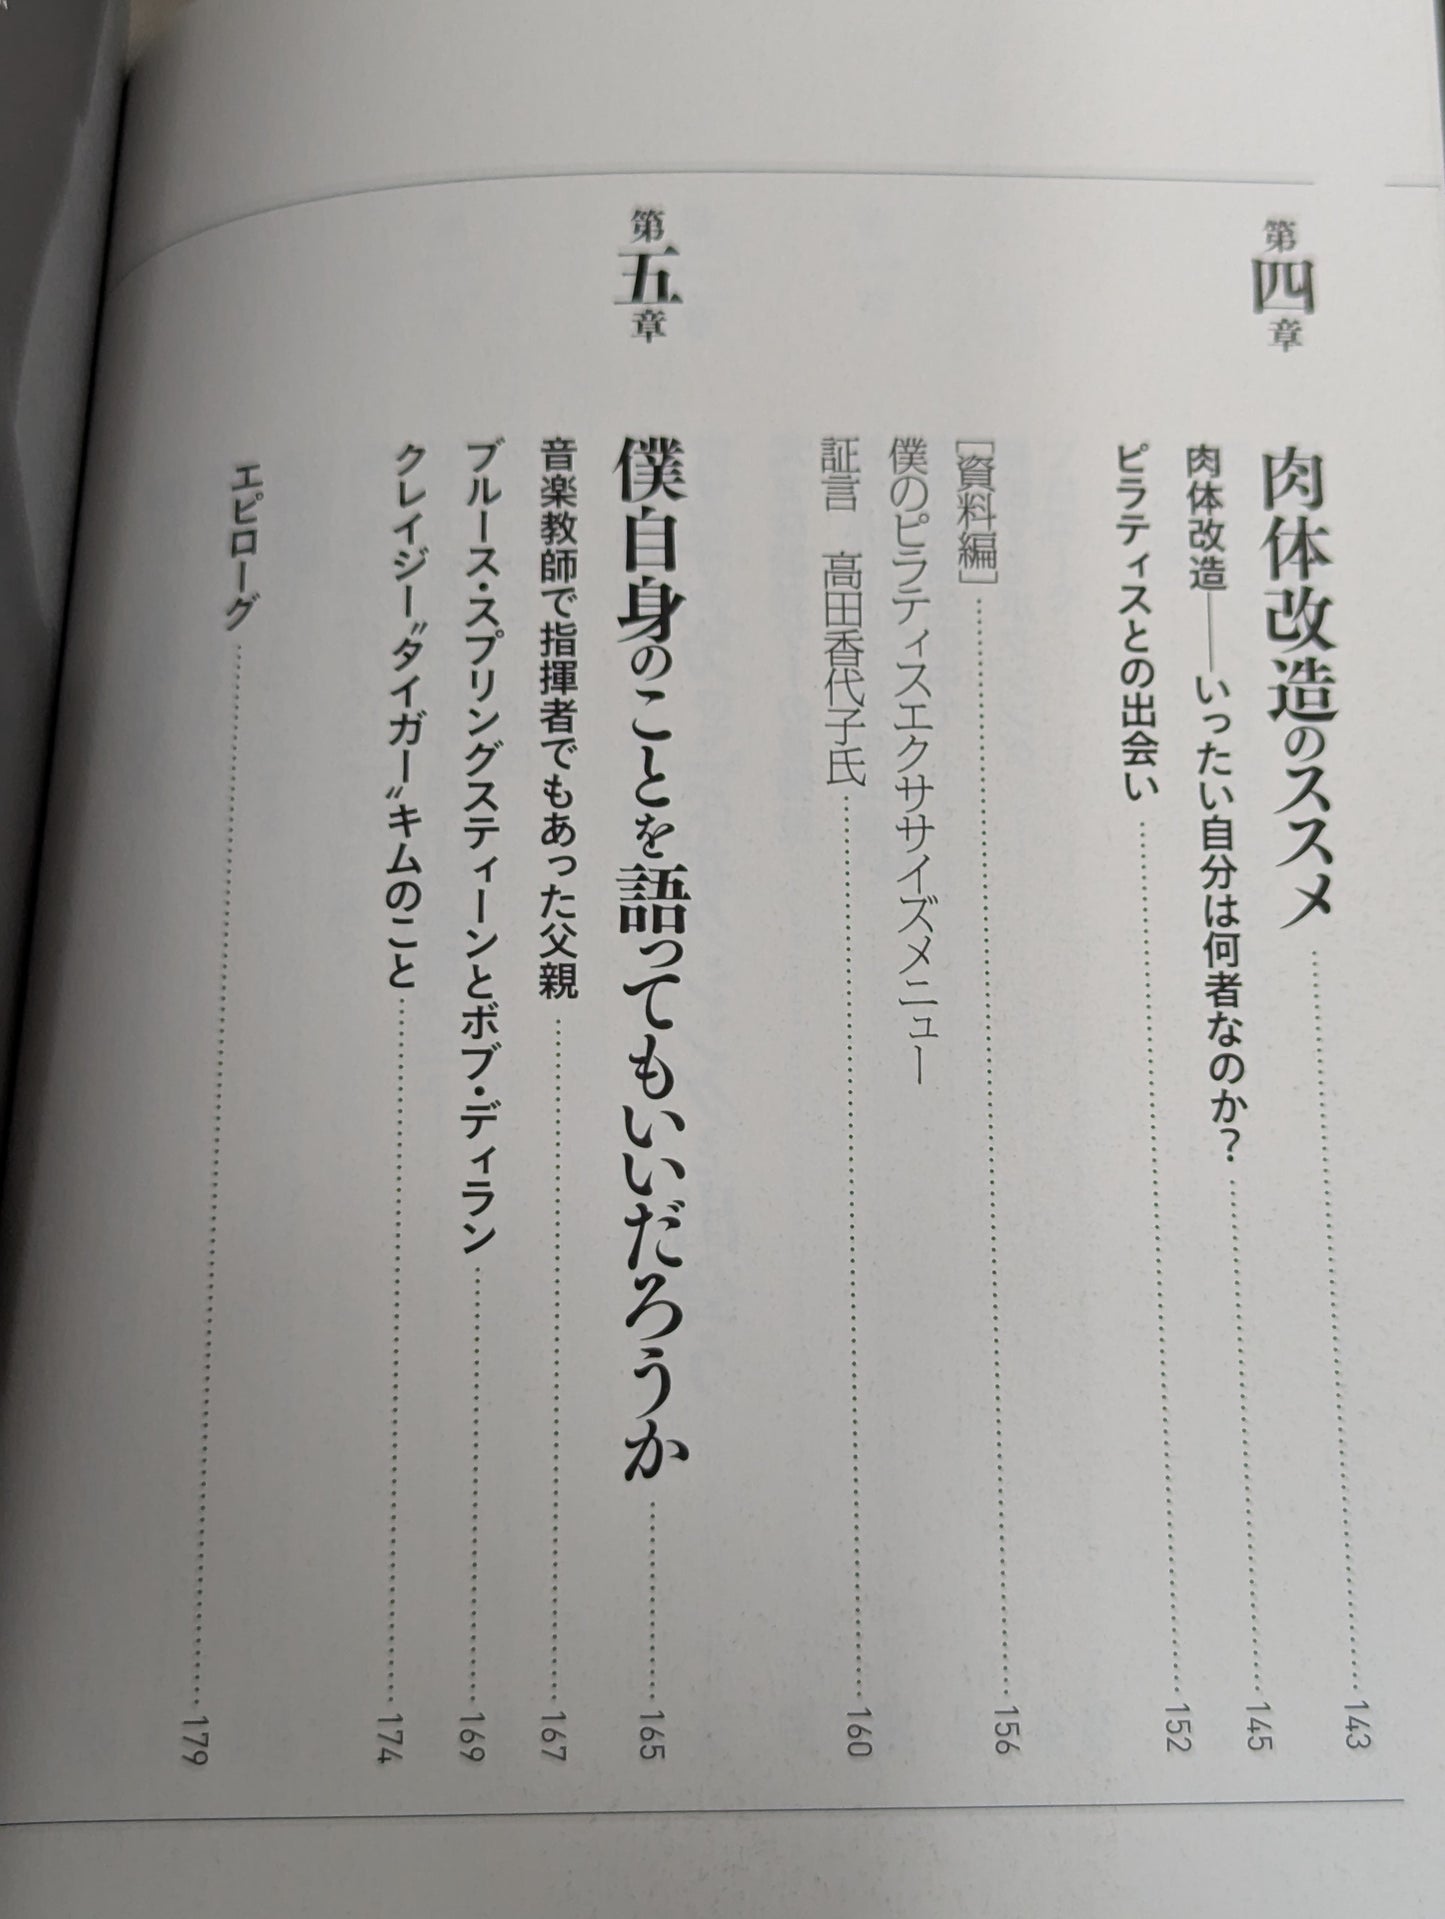 第四章 肉体改造のススメ 143
肉体改造――いったい自分は何者なのか？ 145
ピラティスとの出会い 152
［資料編］ 156
僕のピラティスエクササイズメニュー
証言　高田香代子氏 160
第五章 僕自身のことを語ってもいいだろうか 165
音楽教師で指揮者でもあった父親 167
ブルース・スプリングスティーンとボブ・ディラン 169
クレイジー〝タイガー〟キムのこと 174
エピローグ 179